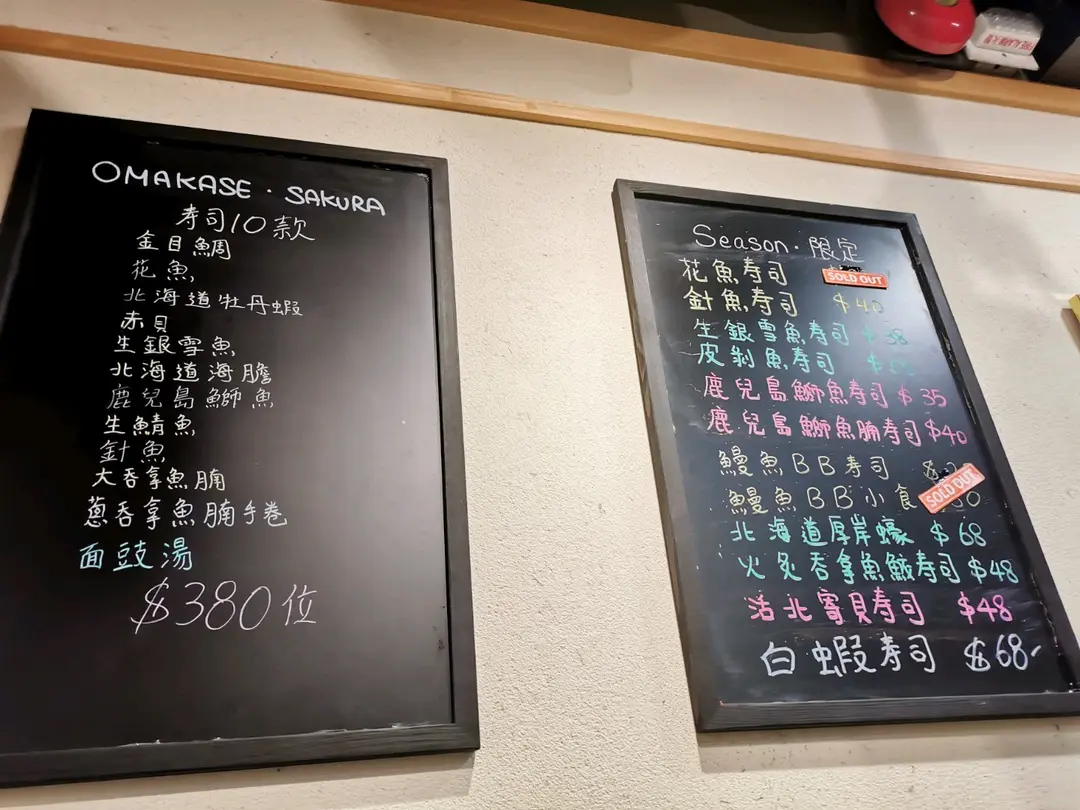 OMAKASE · SAKURA
寿司10款
金目鯛
花魚
北海道牡丹蝦
赤貝
生銀雪魚
北海道海膽
鹿兒島鰤魚
生鯖魚
針魚
大吞拿魚腩
蔥吞拿魚腩手卷
面豉湯
$380位
Season · 限定
花魚寿司 SOLD OUT
針魚寿司 $40
生銀雪魚寿司 $38
皮剝魚寿司
鹿兒島鰤魚寿司 $35
鹿兒島鰤魚腩寿司 $40
鰻魚BB寿司
鰻魚BB小食 SOLD OUT
北海道厚岸蠔 $68
火炙吞拿魚鮫寿司 $48
活北寄貝寿司 $48
白蝦寿司 $68-